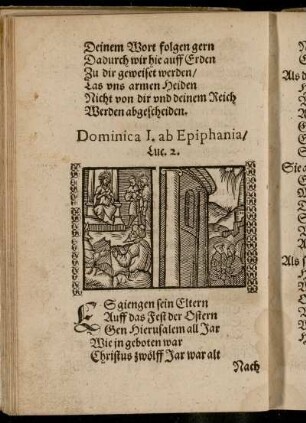 Deinem Wort folgen gern
Dadurch wir hie auff Erden
Zu dir geweiset werden/
Las vns armen Heiden
Nicht von dir vnd deinem Reich
Werden abgescheiden.
Dominica I. ab Epiphania/
Luc. 2.
ES giengen sein Eltern
Auff das Fest der Ostern
Gen Hierusalem all Jar
Wie jn geboten war
Christus zwölff Jar war alt
Nach